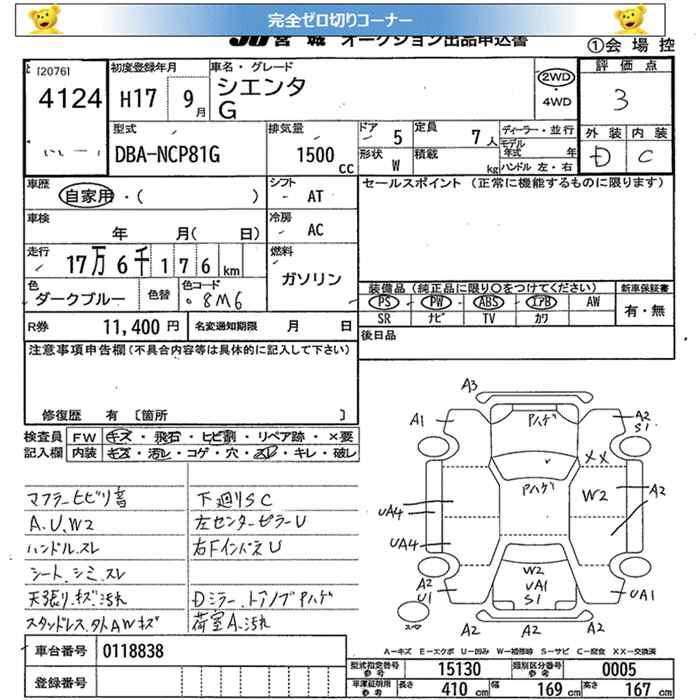 完全ゼロ切りコーナー
JU 宮城 オークション出品申込書
①会場控
[2076]
4124
初度登録年月
H17 9月
車名・グレード
シエンタ
G
2WD
・4WD
評価点
3
外装 内装
D C
型式
DBA-NCP81G
排気量
1500 cc
ドア 5
定員 7人
ディーラー・並行
モデル年式 年
形状 W
積載 kg
ハンドル 左・右
車歴
自家用・( )
シフト AT
セールスポイント (正常に機能するものに限ります)
車検
年 月( 日)
冷房 AC
走行
17万6千176km
燃料
ガソリン
色
ダークブルー
色替
色コード
8M6
装備品(純正品に限り〇をつけてください)
新車保証書
PS PW ABS エアB AW
SR ナビ TV カワ
有・無
R券 11,400円
名変通知期限 月 日
後日品
注意事項申告欄(不具合内容等は具体的に記入して下さい)
修復歴 有 [箇所 ]
検査員記入欄
FW キズ・飛石・ヒビ割・リペア跡・×要
内装 キズ・汚レ・コゲ・穴・スレ・キレ・破レ
マフラーヒビリ音
A.U.W2
ハンドル.スレ
シート.シミ.スレ
天張り.キズ.汚れ
スタッドレス.タ外AWキズ
下廻りSC
左センターピラーU
右FインパネU
Dミラー.ドアノブPハゲ
荷室A.汚れ
A3
Pハゲ
A1
A2
S1
××
Pハゲ
W2
A2
UA4
UA4
W2
UA1
S1
A2
U1
UA1
スマ
A2
A2
A-キズ E-エクボ U-凹み W-補修跡 S-サビ C-腐食 XX-交換済
車台番号 0118838
登録番号
型式指定番号 参考 15130
類別区分番号 参考 0005
車庫証明用 参考
長さ 410 cm
幅 169 cm
高さ 167 cm